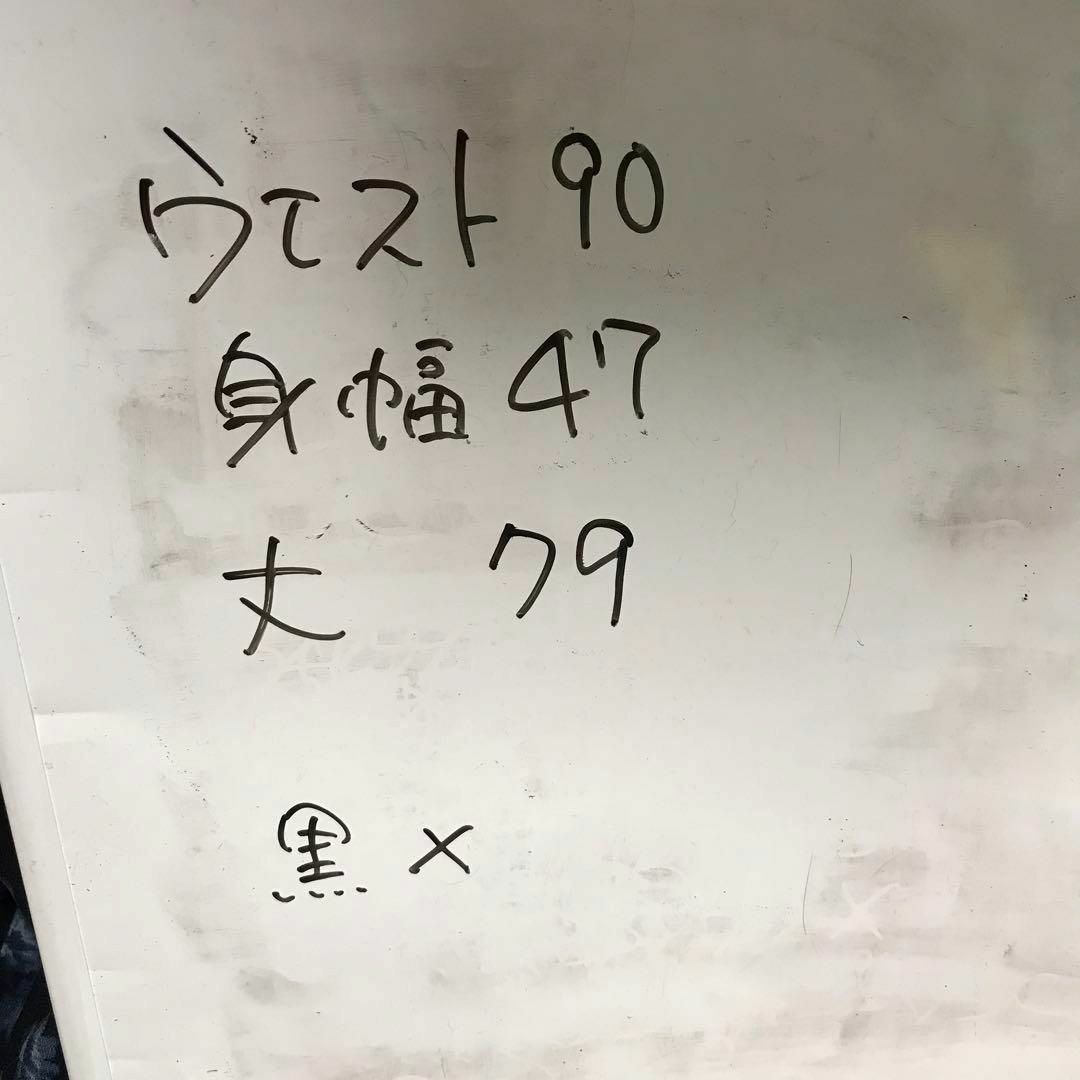 ウエスト 90
身幅 47
丈 79
黒 ×